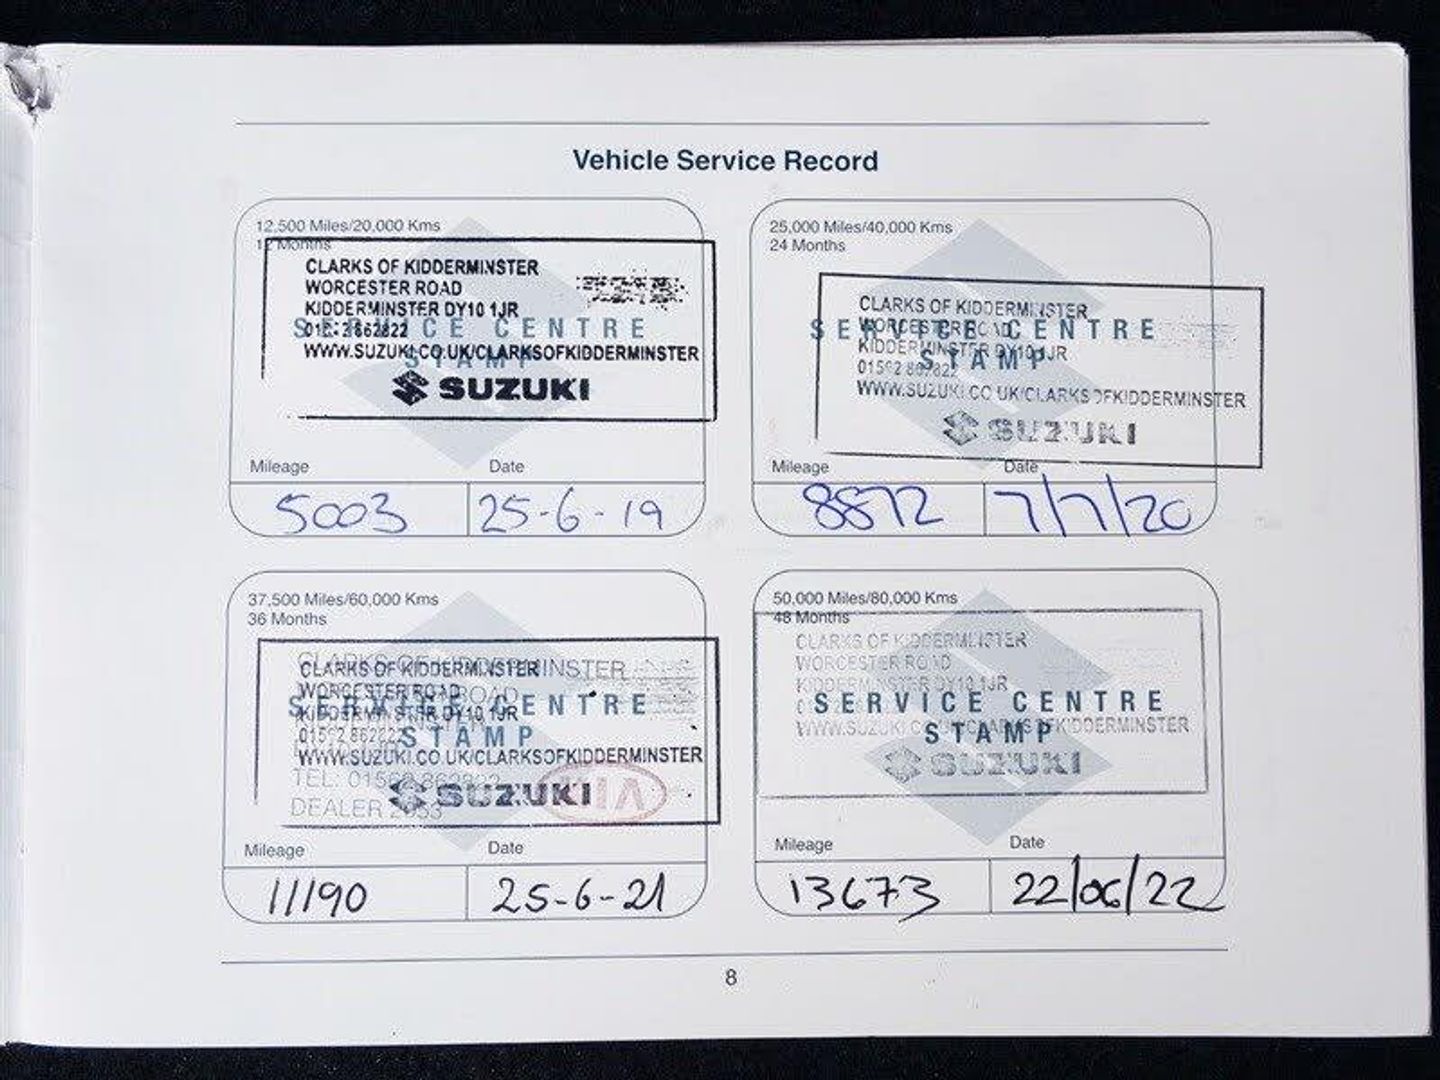 Vehicle Service Record
12,500 Miles/20,000 Kms
12 Months
CLARKS OF KIDDERMINSTER
WORCESTER ROAD
KIDDERMINSTER DY10 1JR
SERVICE CENTRE
STAMP
WWW.SUZUKI.CO.UK/CLARKSOFKIDDERMINSTER
SUZUKI
Mileage Date
5003 25-6-19
25,000 Miles/40,000 Kms
24 Months
CLARKS OF KIDDERMINSTER
WORCESTER ROAD
SERVICE CENTRE
KIDDERMINSTER DY10 1JR
STAMP
WWW.SUZUKI.CO.UK/CLARKSOFKIDDERMINSTER
SUZUKI
Mileage Date
8872 7/7/20
37,500 Miles/60,000 Kms
36 Months
CLARKS OF KIDDERMINSTER
WORCESTER ROAD
SERVICE CENTRE
KIDDERMINSTER DY10 1JR
STAMP
WWW.SUZUKI.CO.UK/CLARKSOFKIDDERMINSTER
TEL: 01562
DEALER
SUZUKI
KIA
Mileage Date
11190 25-6-21
50,000 Miles/80,000 Kms
48 Months
CLARKS OF KIDDERMINSTER
WORCESTER ROAD
KIDDERMINSTER DY10 1JR
SERVICE CENTRE
WWW.SUZUKI.CO.UK/CLARKSOFKIDDERMINSTER
STAMP
SUZUKI
Mileage Date
13673 22/06/22
8